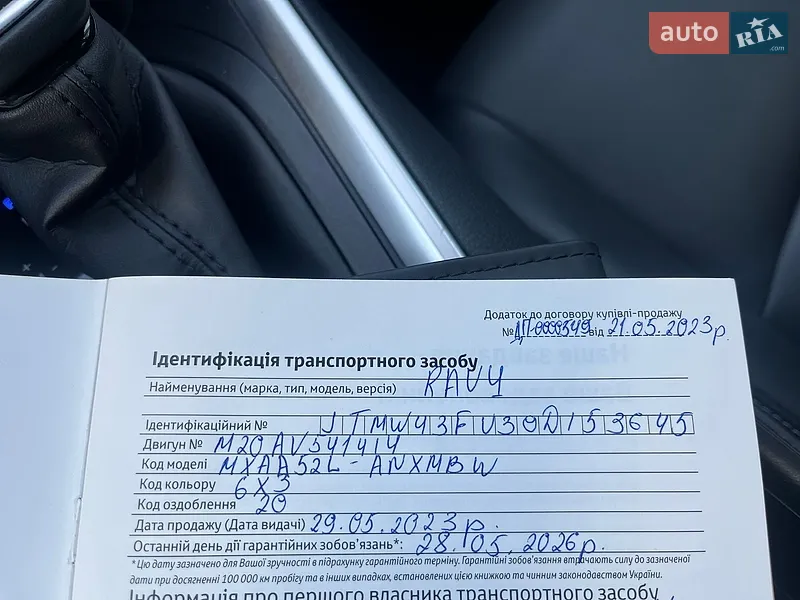 auto RIA.com
Додаток до договору купівлі-продажу
№ ДП-0000549 від 21.05.2023р.
Ідентифікація транспортного засобу
Найменування (марка, тип, модель, версія) RAV4
Ідентифікаційний № JTMW43FU30D153645
Двигун № M20AV541414
Код моделі MXAA52L-ANXMBW
Код кольору 6X3
Код оздоблення 20
Дата продажу (Дата видачі) 29.05.2023р.
Останній день дії гарантійних зобов'язань*: 28.05.2026р.
*Цю дату зазначено для Вашої зручності в підрахунку гарантійного терміну. Гарантійні зобов'язання втрачають силу до зазначеної
дати при досягненні 100 000 км пробігу та в інших випадках, встановлених цією книжкою та чинним законодавством України.
Інформація про першого власника транспортного засобу